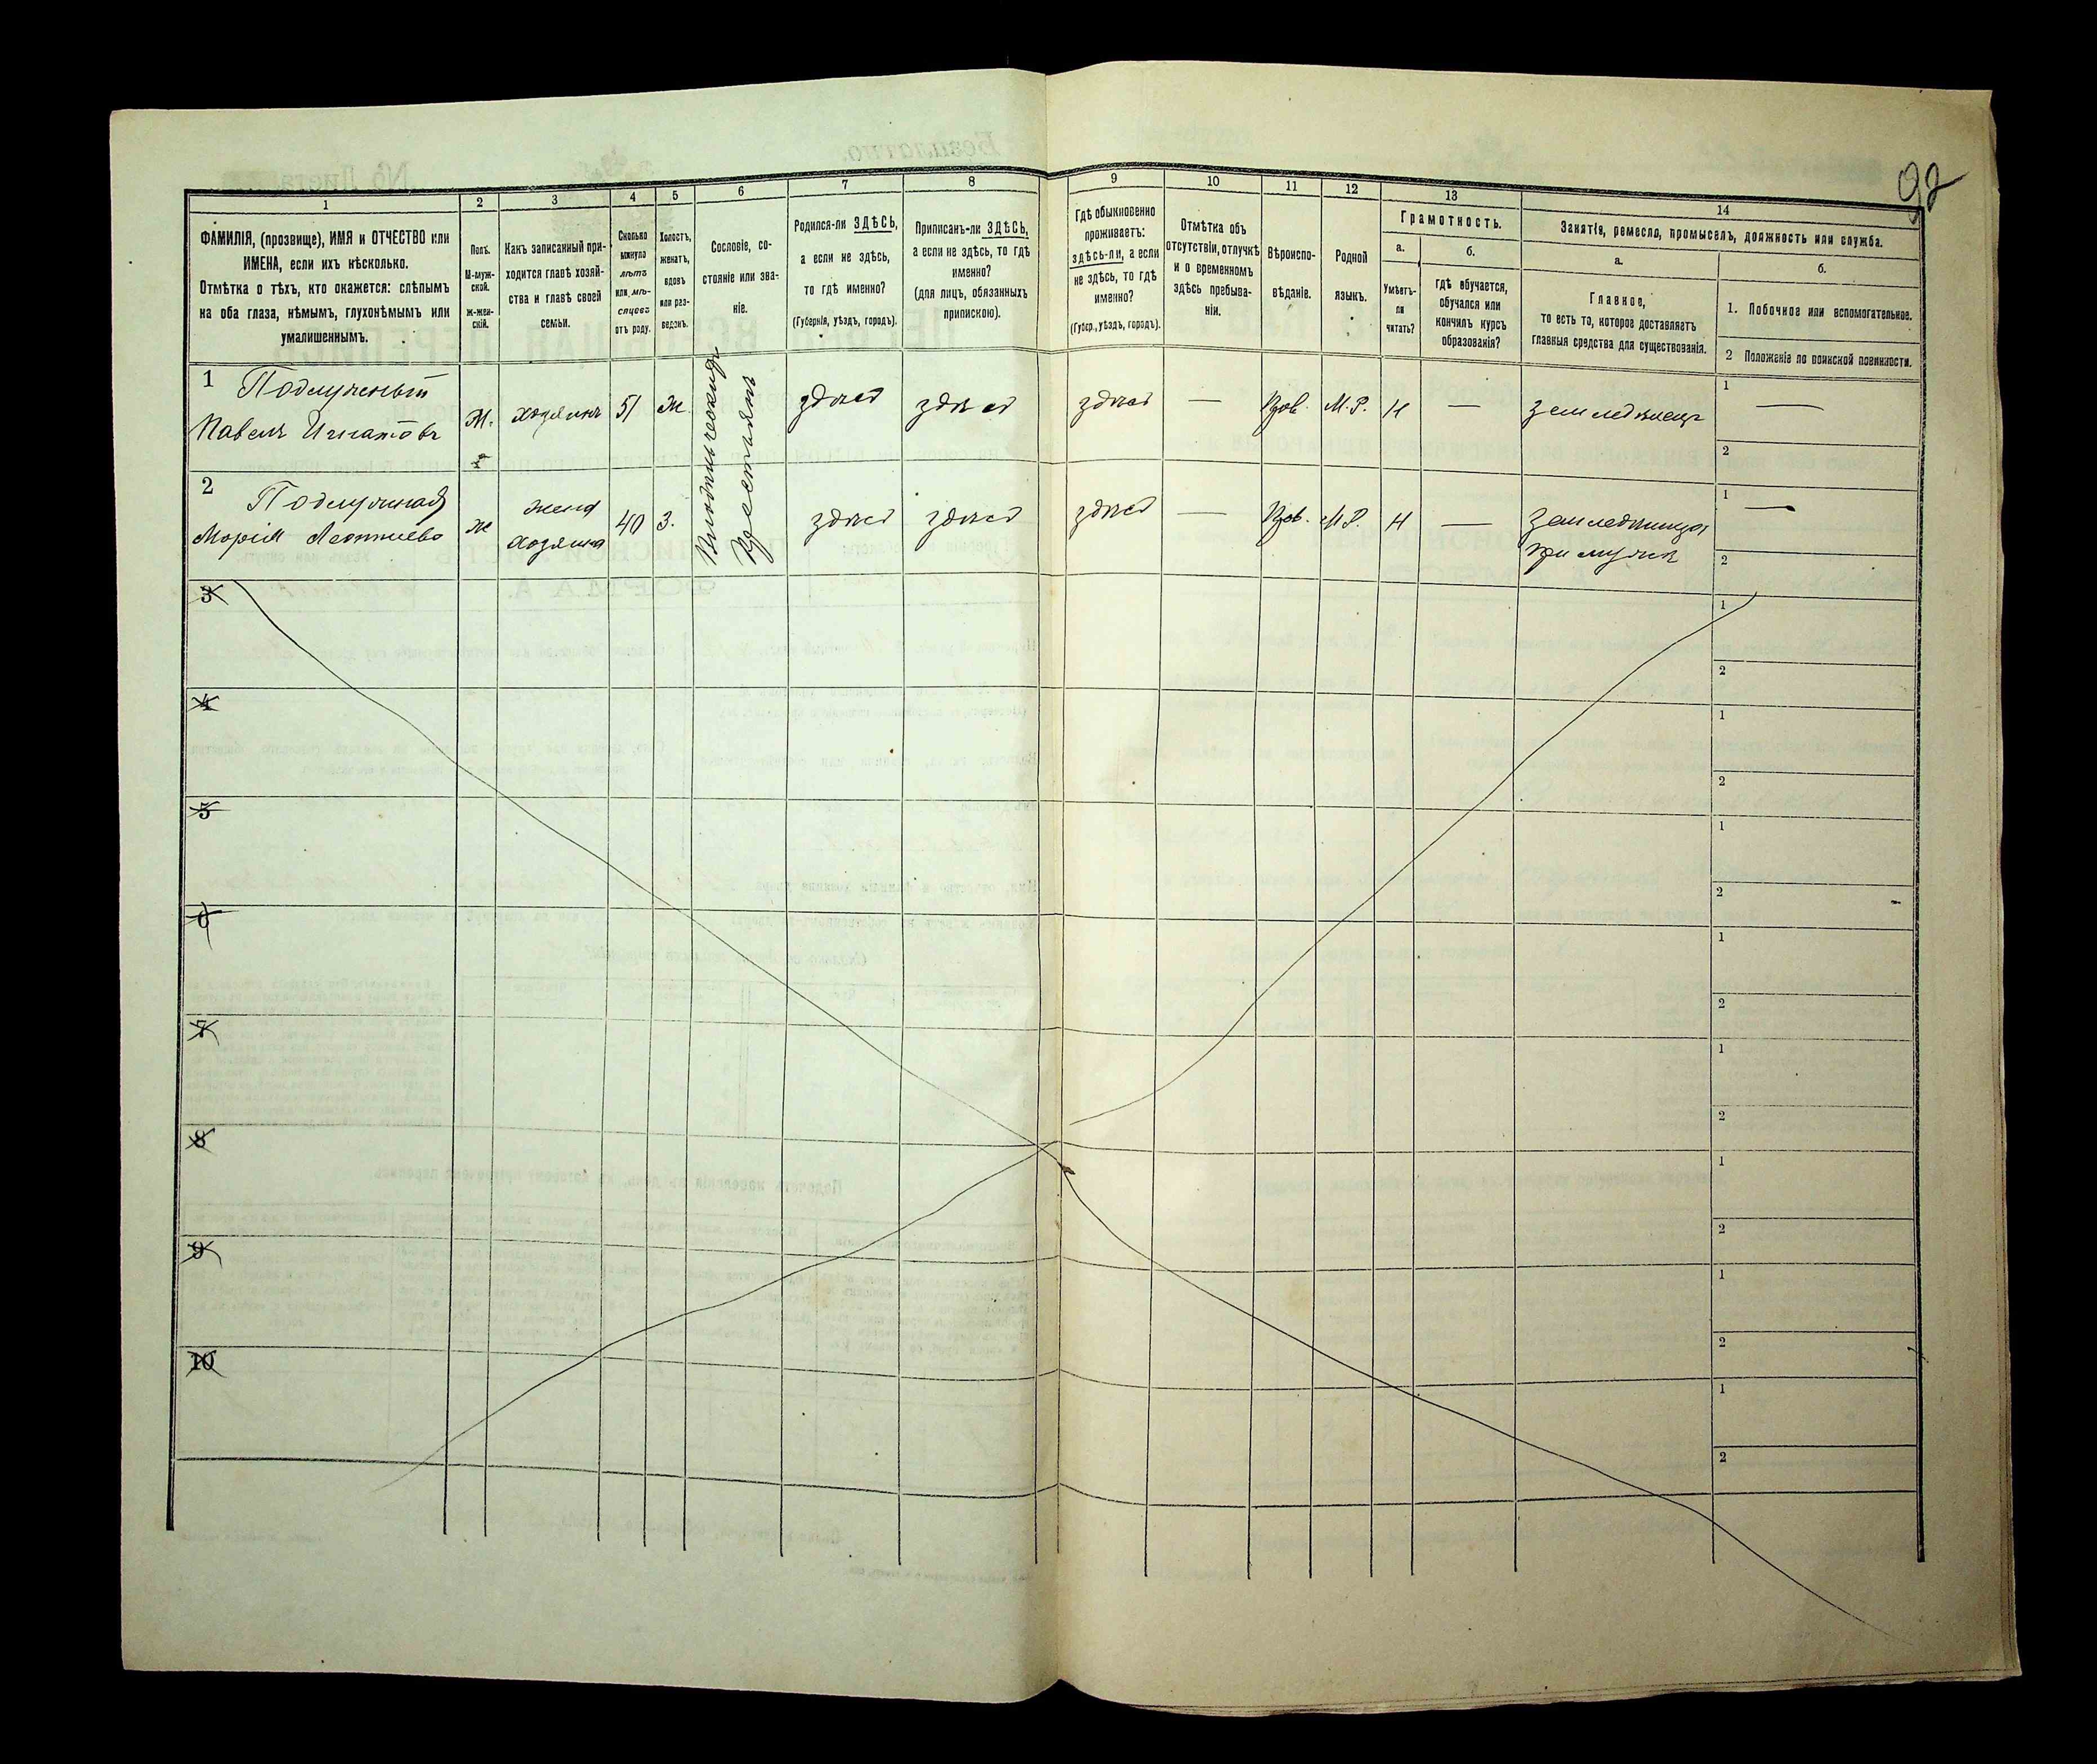 92
1
2
3
4
5
6
7
8
9
10
11
12
13
14
ФАМИЛІЯ, (прозвище), ИМЯ и ОТЧЕСТВО или
ИМЕНА, если ихъ нѣсколько.
Отмѣтка о тѣхъ, кто окажется: слѣпымъ
на оба глаза, нѣмымъ, глухонѣмымъ или
умалишеннымъ.
Полъ.
М-муж-
ской.
Ж-жен-
скій.
Какъ записанный при-
ходится главѣ хозяй-
ства и главѣ своей
семьи.
Сколько
минуло
лѣтъ
или мѣ-
сяцевъ
отъ роду.
Холостъ,
женатъ,
вдовъ
или раз-
веденъ.
Сословіе, со-
стояніе или зва-
ніе.
Родился-ли ЗДѢСЬ,
а если не здѣсь,
то гдѣ именно?
(Губернія, уѣздъ, городъ).
Приписанъ-ли ЗДѢСЬ,
а если не здѣсь, то гдѣ
именно?
(для лицъ, обязанныхъ
припискою).
Гдѣ обыкновенно
проживаетъ:
здѣсь-ли, а если
не здѣсь, то гдѣ
именно?
(Губер., уѣздъ, городъ).
Отмѣтка объ
отсутствіи, отлучкѣ
и о временномъ
здѣсь пребыва-
ніи.
Вѣроиспо-
вѣданіе.
Родной
языкъ.
Грамотность.
а.
Умѣетъ-
ли
читать?
б.
гдѣ обучается,
обучался или
кончилъ курсъ
образованія?
Занятія, ремесло, промыселъ, должность или служба.
а.
Главное,
то есть то, которое доставляетъ
главныя средства для существованія.
б.
1. Побочное или вспомогательное.
2 Положеніе по воинской повинности.
1
Подлужный
Павелъ Игнатовъ
М.
хозяинъ
51
Ж.
здѣсь
здѣсь
здѣсь
—
Прав.
М.Р.
Н
—
земледѣлецъ
1 —
2
2
Подлужная
Марія Леонтиева
Ж
жена
хозяина
40
З.
Крестьянъ
здѣсь
здѣсь
здѣсь
—
Прав.
М.Р.
Н
—
при мужѣ
1 —
2
3
1
2
4
1
2
5
1
2
6
1
2
7
1
2
8
1
2
9
1
2
10
1
2